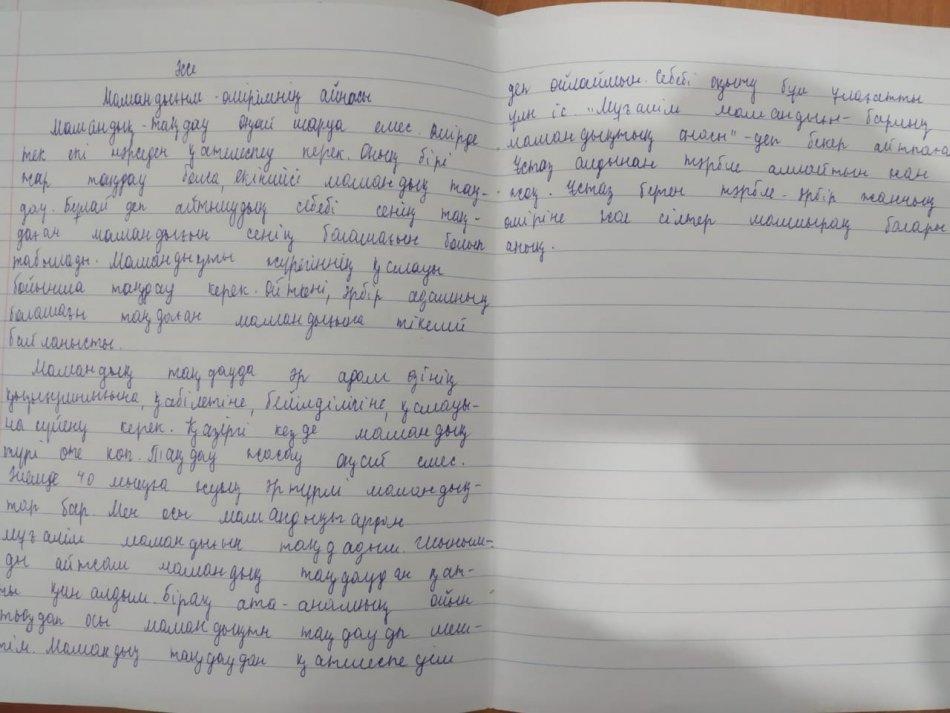 Эссе
Мамандығым - өмірімнің айнасы
Мамандық - таңдау оңай шаруа емес. Өмірде
тек екі нәрседен қателеспеу керек. Оның бірі
жар таңдау болса, екіншісі мамандық таң-
дау. Бұлай деп айтышудың себебі сенің таң-
даған мамандығың сенің болашағың болып
табылады. Мамандықты жүрегіннің қалауы
бойынша таңдау керек. Өйткені, әрбір адамның
болашағы таңдаған мамандығына тікелей
байланысты.
Мамандық таңдауда әр адам өзінің
қызығушылығына, қабілетіне, бейімділігіне, қалауы-
на сүйену керек. Қазіргі кезде мамандық
түрі өте көп. Таңдау жасау оңай емес.
Әлемде 40 мыңға жуық әр түрлі мамандық-
тар бар. Мен осы мамандықтардың
мұғалім мамандығын таңдадым. Шыным-
ды айтсам мамандық таңдаудан қат-
ты қиналдым. Бірақ ата-анамның ойын
тыңдап осы мамандықты таңдауды шеш-
тім. Мамандық таңдаудан қателеспедім
деп ойлаймын. Себебі оқыту бұл ұлағатты
ұлы іс. "Мұғалім мамандығы - барлық
мамандықтың анасы" - деп бекер айтпаған
Ұстаз алдынан тәрбие алмайтын жан
жоқ. Ұстаз берген тәрбие - әрбір жанның
өміріне жол сілтер шамшырақ болары
анық.